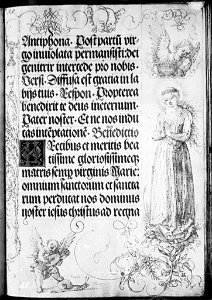 Antiphona. Post partũ vir-
go inviolata permansisti: dei
genitrix intercede pro nobis.
Versi. Diffusa est gratia in la
bijs tuis. Respon. Propterea
benedixit te deus ineternum.
Pater noster. Et ne nos indu
cas intẽptationẽ. Benedictio
Precibus et meritis bea
tissime gloriosissimeq;
matris semp virginis Marie:
omnium sanctorum et sancta
rum perducat nos dominus
noster iesus christus ad regna